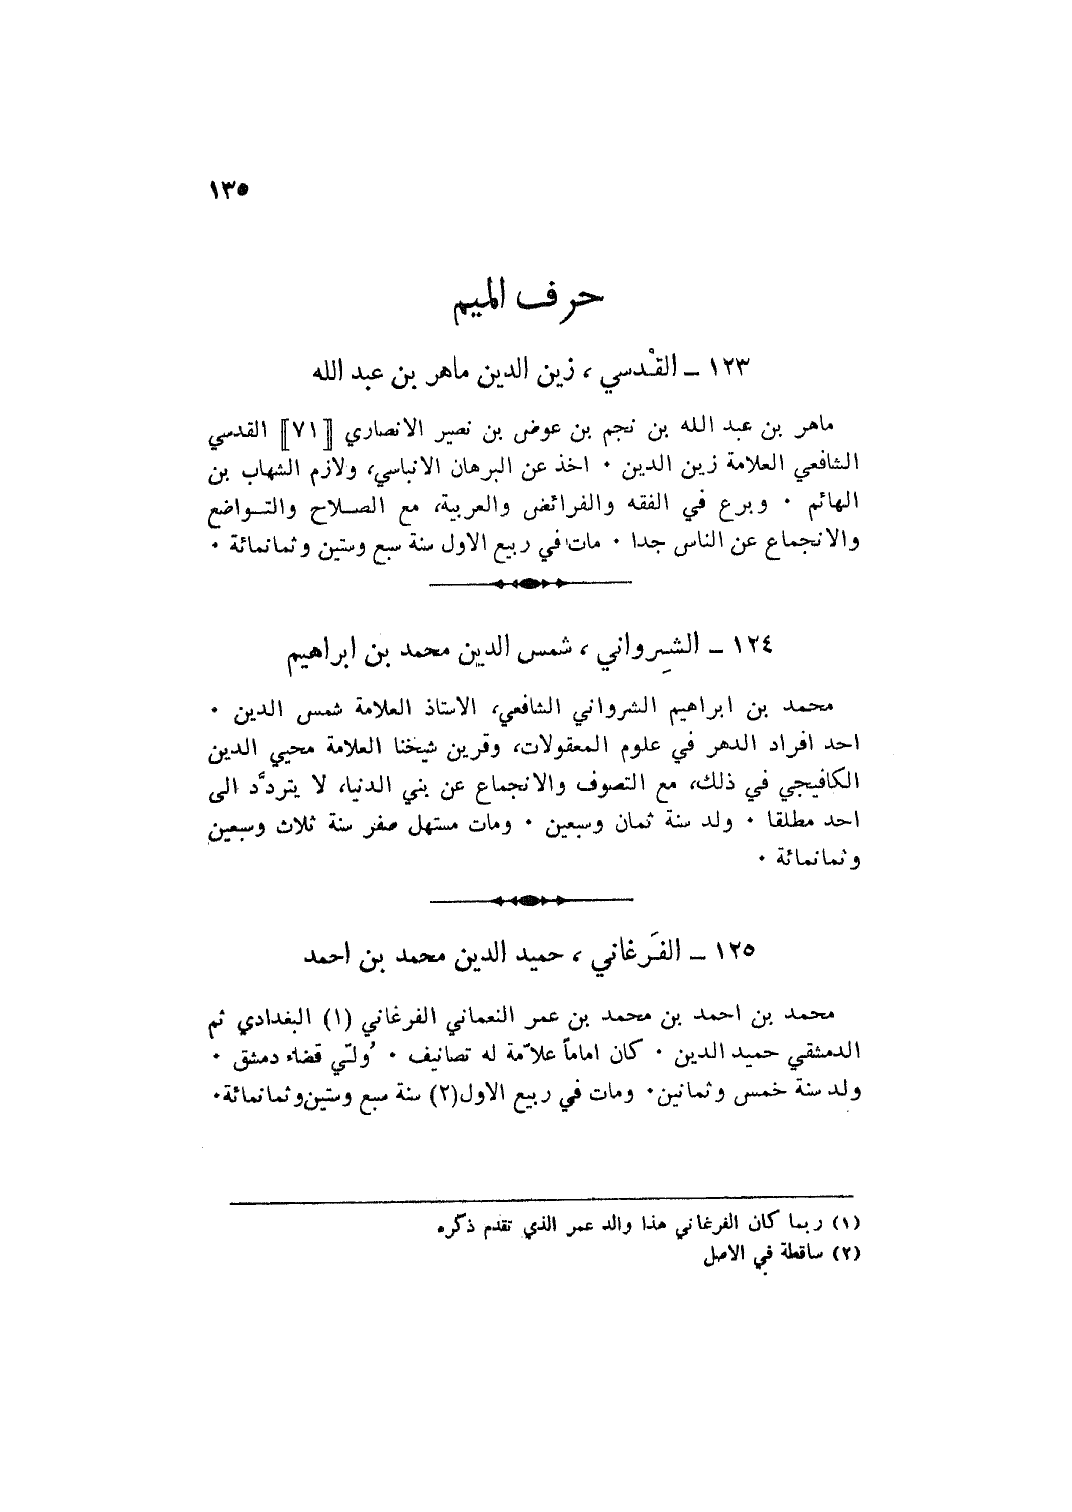 ١٣٥
حرف الميم
١٢٣ ــ القْدسي ، زين الدين ماهر بن عبد الله
ماهر بن عبد الله بن نجم بن عوض بن نصير الانصاري [[٧١]] القدسي
الشافعي العلامة زين الدين ٠ اخذ عن البرهان الانباسي، ولازم الشهاب بن
الهائم ٠ وبرع في الفقه والفرائض والعربية، مع الصـلاح والتـواضع
والانجماع عن الناس جدا ٠ مات في ربيع الاول سنة سبع وستين وثمانمائة ٠
١٢٤ ــ الشِرواني ، شمس الدين محمد بن ابراهيم
محمد بن ابراهيم الشرواني الشافعي، الاستاذ العلامة شمس الدين ٠
احد افراد الدهر في علوم المعقولات، وقرين شيخنا العلامة محيي الدين
الكافيجي في ذلك، مع التصوف والانجماع عن بني الدنيا، لا يتردَّد الى
احد مطلقا ٠ ولد سنة ثمان وسبعين ٠ ومات مستهل صفر سنة ثلاث وسبعين
وثمانمائة ٠
١٢٥ ــ الفَرغاني ، حميد الدين محمد بن احمد
محمد بن احمد بن محمد بن عمر النعماني الفرغاني (١) البغدادي ثم
الدمشقي حميد الدين ٠ كان اماماً علاّمة له تصانيف ٠ وُلّي قضاء دمشق ٠
ولد سنة خمس وثمانين٠ ومات في ربيع الاول(٢) سنة سبع وستين وثمانمائة٠
(١) ربما كان الفرغاني هذا والد عمر الذي تقدم ذكره
(٢) ساقطة في الاصل